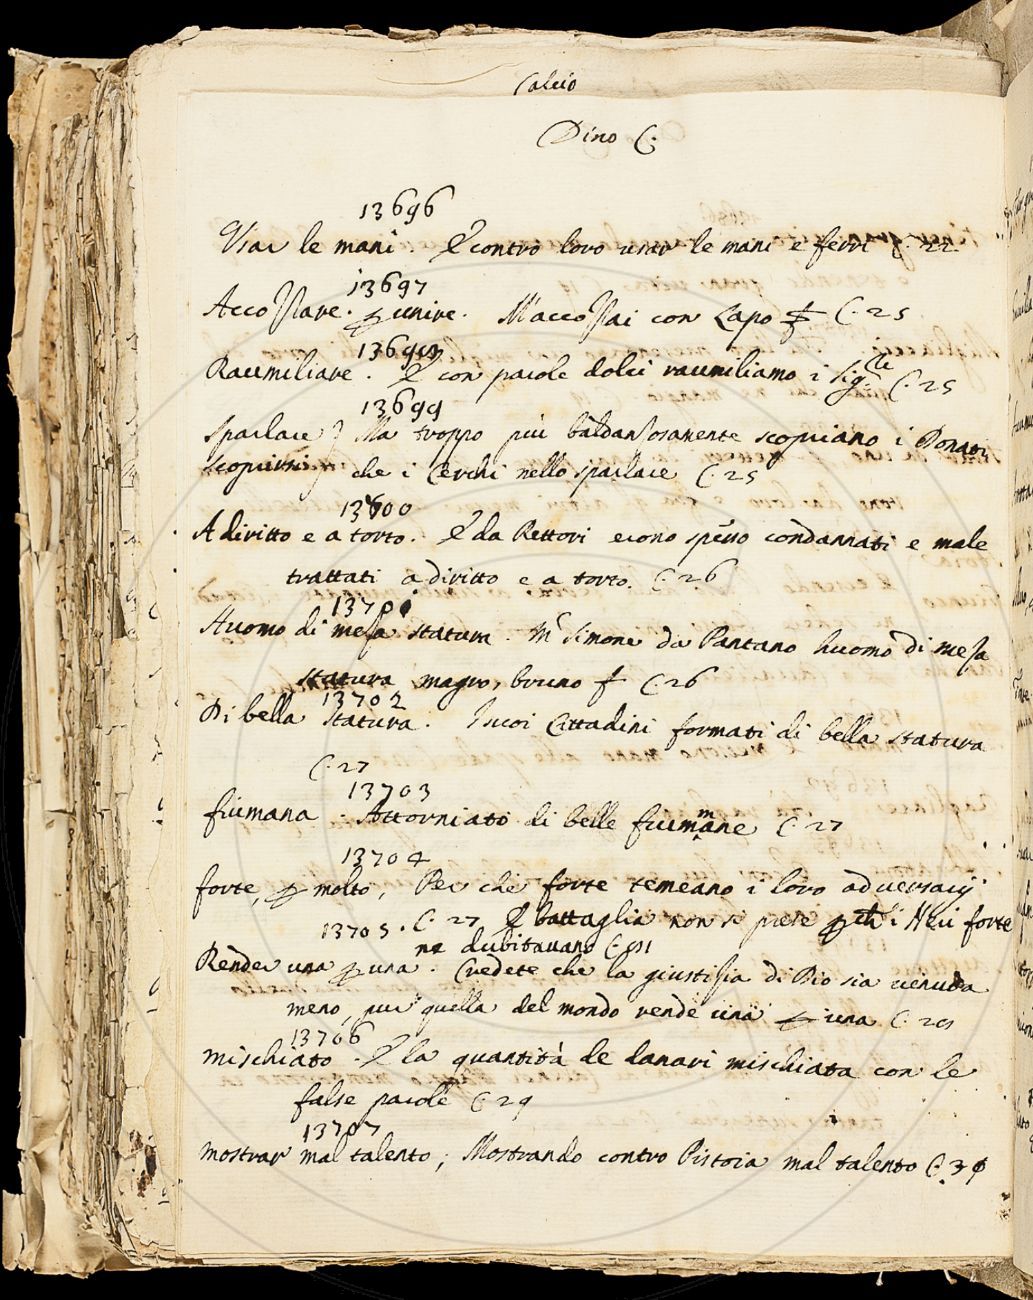 Calcio
Dino C.
13696
Usar le mani. E contro loro usar le mani e ferri C. 22
13697
Accostare. p unire. M'accostai con Lapo C. 25
13698
Raumiliare. E con parole dolci raumiliamo i Sig.
C. 25
13699
Sparlare Ma troppo più baldansosamente scopriano i Donati
scoprirsi che i Cerchi nello sparlare C. 25
13700
A diritto e a torto. E da Rettori erono spesso condannati e male
trattati a diritto e a torto. C. 26
13701
Huomo di mesa statura. M. Simone da Pantano huomo di mesa
statura magro, bruno C. 26
13702
Di bella statura. I suoi Cittadini formati di bella statura
C. 27
13703
fiumana. Attorniato di belle fiumane C. 27
13704
forte, p molto, Per che forte temeano i loro adversarij
C. 27 E battaglia non si prese i Neri forte
13705.
ne dubitavano C.
Render una p una. Credete che la giustisia di Dio sia venuta
meno, pur quella del mondo rende una p una C. 29
13706
mischiato. E la quantità de danari mischiata con le
false parole C. 29
13707
mostrar mal talento; Mostrando contro Pistoia mal talento C. 30